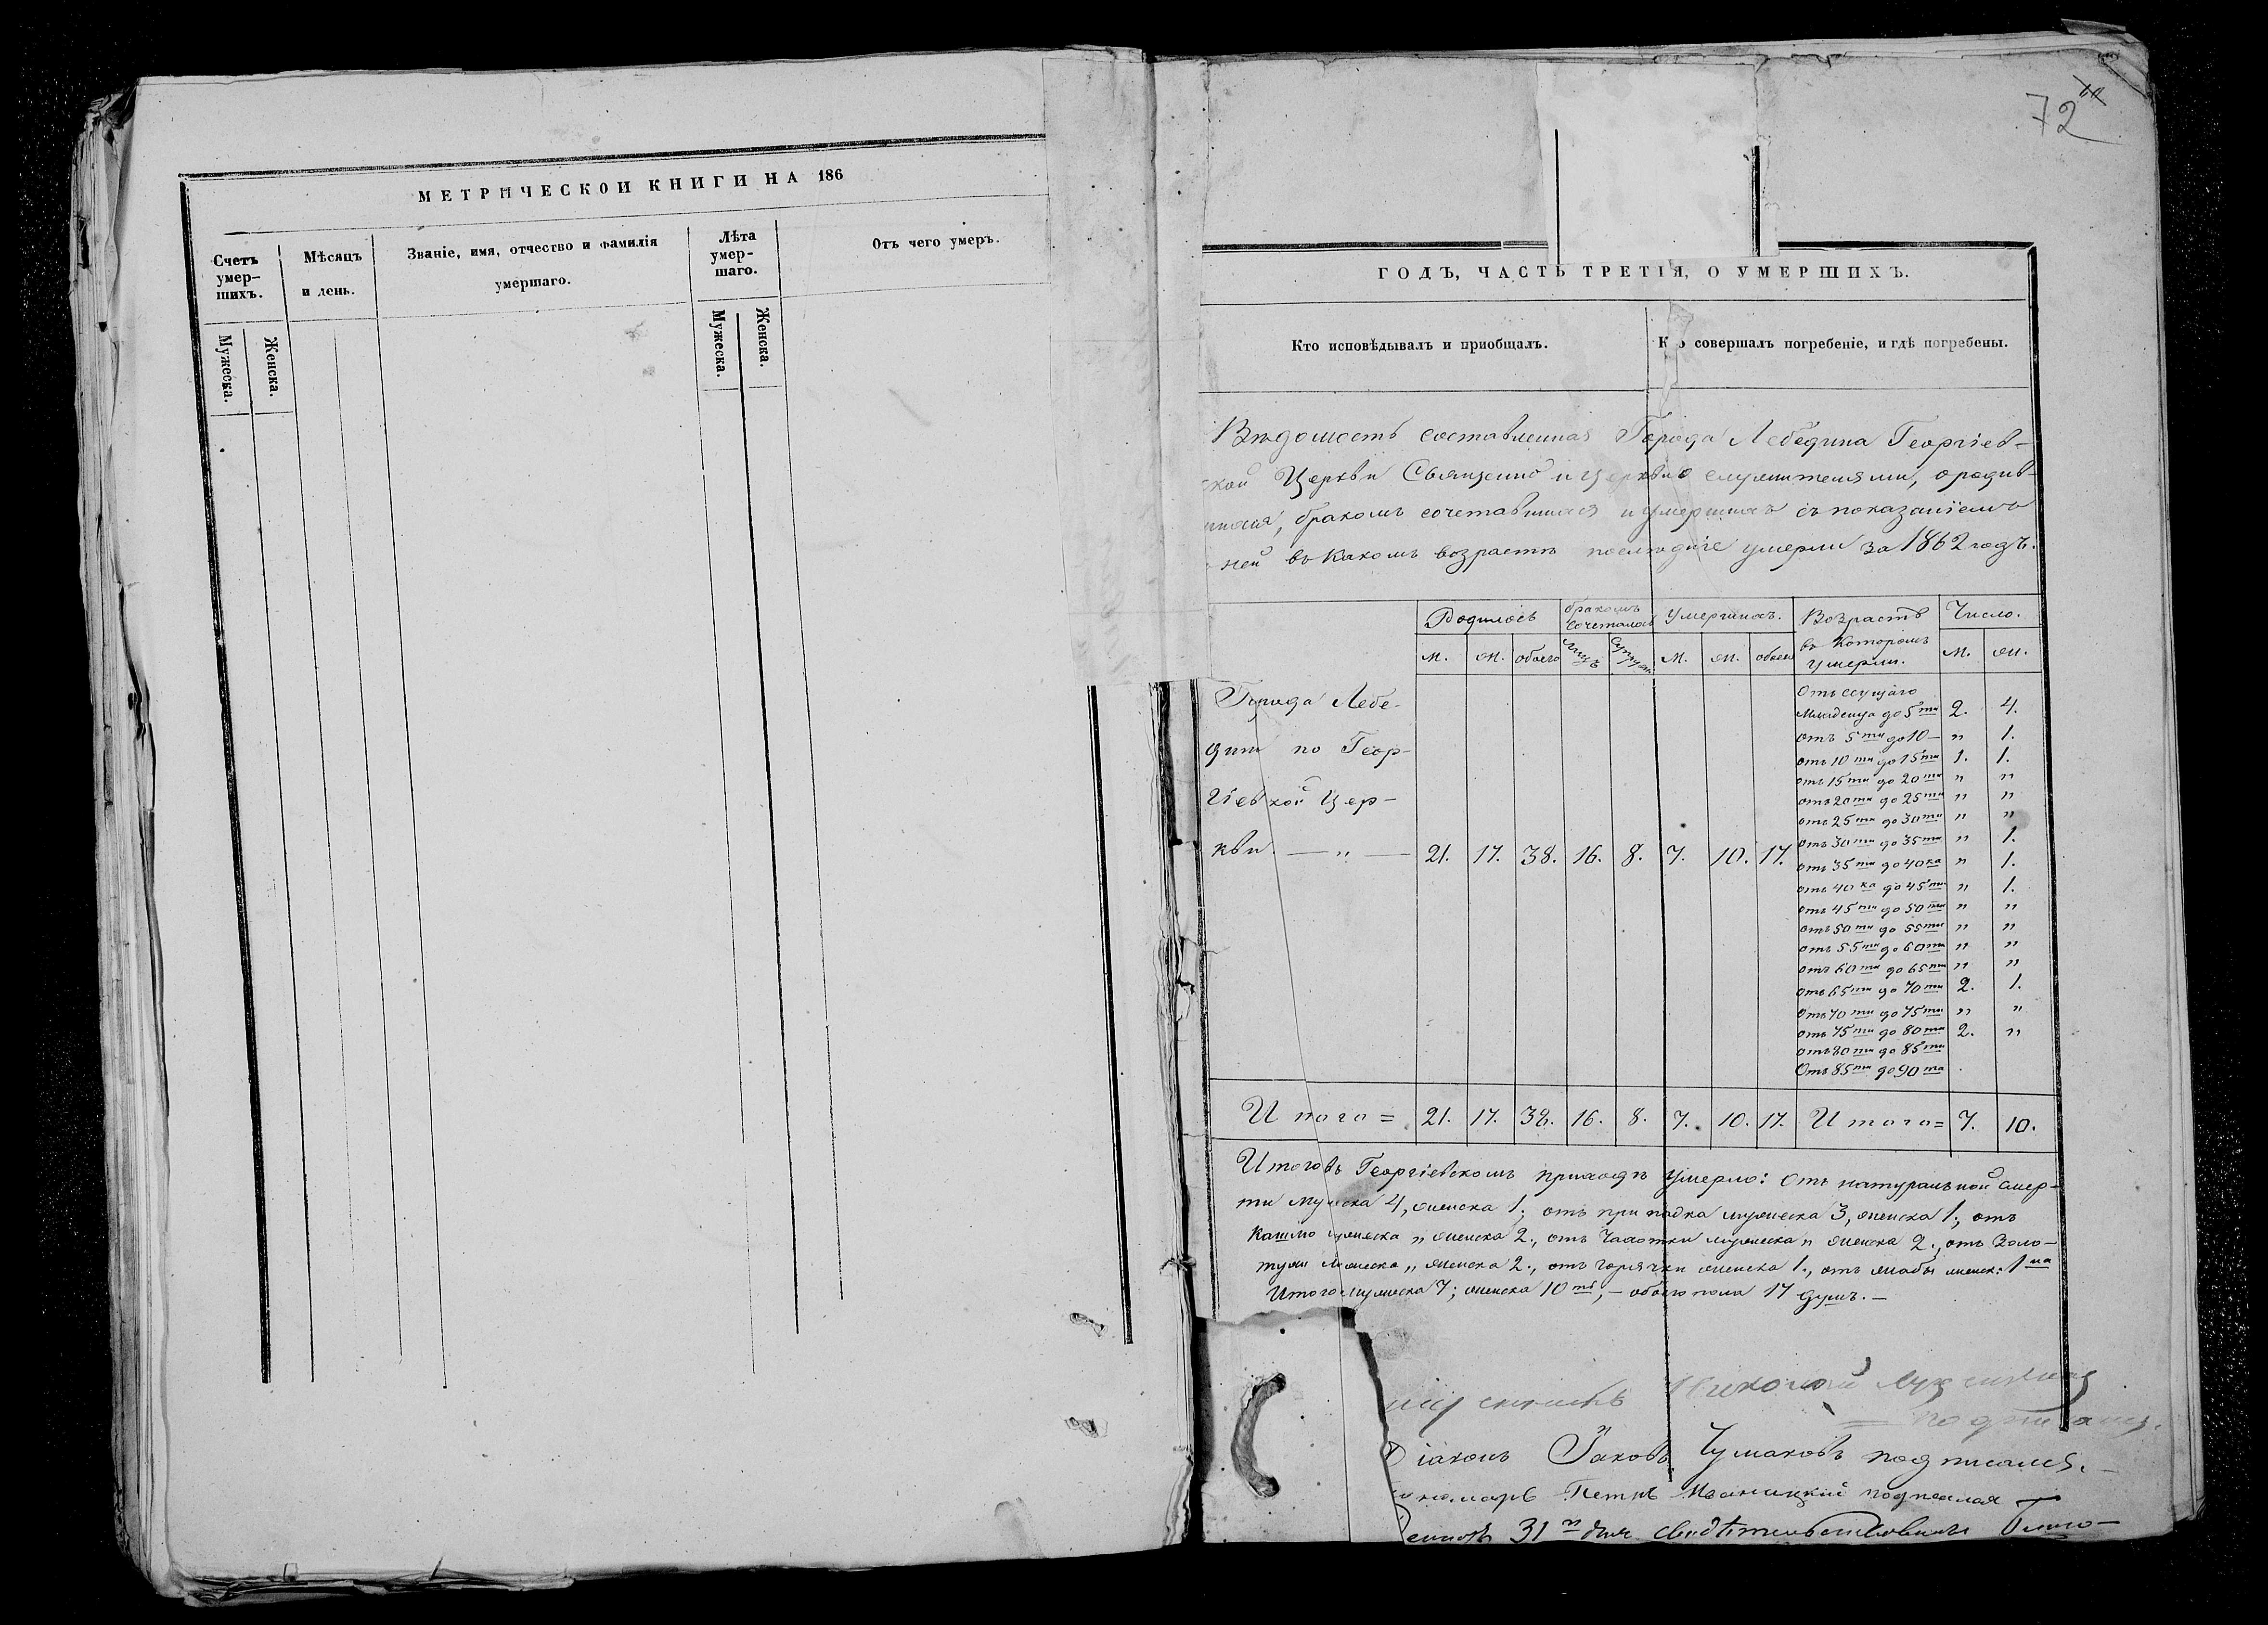 МЕТРИЧЕСКОЙ КНИГИ НА 186
Счетъ умер-шихъ.
Мѣсяцъ и день.
Званіе, имя, отчество и фамилія умершаго.
Лѣта умер-шаго.
Отъ чего умеръ.
Мужеска.
Женска.
Мужеска.
Женска.
72
ГОДЪ, ЧАСТЬ ТРЕТІЯ, О УМЕРШИХЪ.
Кто исповѣдывалъ и приобщалъ.
совершалъ погребеніе, и гдѣ погребены.
Вѣдомость составленная Города Лебедина Георгіев-
ской Церкви Священно и церковно служителями, о родив-
шихся, бракомъ сочетавшихся и умершихъ съ показаніемъ
въ какомъ возрастѣ послѣдніе умерли за 1862 годъ.
Родилось бракомъ сочеталось Умершихъ. Возрастъ въ которомъ умерли. Число.
м. ж. обоего м. ж. обоего м. ж.
Города Лебе-
дина по Геор-
гіевской Цер-
кви. — „ — 21. 17. 38. 16. 8. 7. 10. 17.
Отъ сущаго
младенца до 5ти 2. 4.
отъ 5ти до 10 — „ 1.
отъ 10ти до 15ти 1. 1.
отъ 15ти до 20ти „ „
отъ 20ти до 25ти „ „
отъ 25ти до 30ти „ „
отъ 30ти до 35ти „ 1.
отъ 35ти до 40ка „ 1.
отъ 40ка до 45ти „ 1.
отъ 45ти до 50ти „ „
отъ 50ти до 55ти „ „
отъ 55ти до 60ти „ „
отъ 60ти до 65ти „ „
отъ 65ти до 70ти 2. 1.
отъ 70ти до 75ти „ „
отъ 75ти до 80ти 2. „
отъ 80ти до 85ти
Отъ 85ти до 90та
Итого = 21. 17. 38. 16. 8. 7. 10. 17. Итого = 7. 10.
Итого въ Георгіевскомъ приходѣ умерло: Отъ натуральной смер-
ти мужска 4, женска 1; отъ припадка мужеска 3, женска 1; отъ
кашлю мужеска „ женска 2., отъ Чахотки мужеска „ женска 2., отъ Золо-
тухи мужеска „ женска 2., отъ горячки женска 1., отъ жабы женск: 1на
Итого мужеска 7; женска 10ть; — обоего пола 17 душъ. —
Николай
подписался.
Діаконъ Іаковъ Чумаковъ подписался.
Петръ подписался
31 дня свидѣтельствовалъ